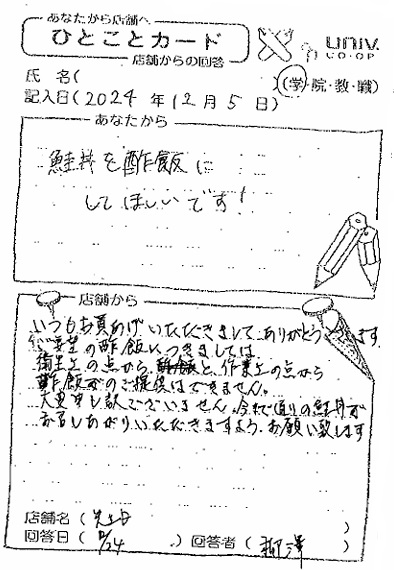 あなたから店舗へ
ひとことカード
店舗からの回答
univ.
CO-OP
氏 名( (学・院・教・職)
記入日(2024年12月5日)
あなたから
鮭丼を酢飯に
してほしいです!
店舗から
いつもお買あげいただきまして、ありがとうございます。
ご要望の酢飯につきましては、
衛生上の点からと、作業上の点から
酢飯でのご提供はできません。
大変申し訳ございません。今まで通りの鮭丼で
お召しあがりいただきますよう、お願い致します
店舗名( )
回答日( 12/24 ) 回答者( 柳澤 )